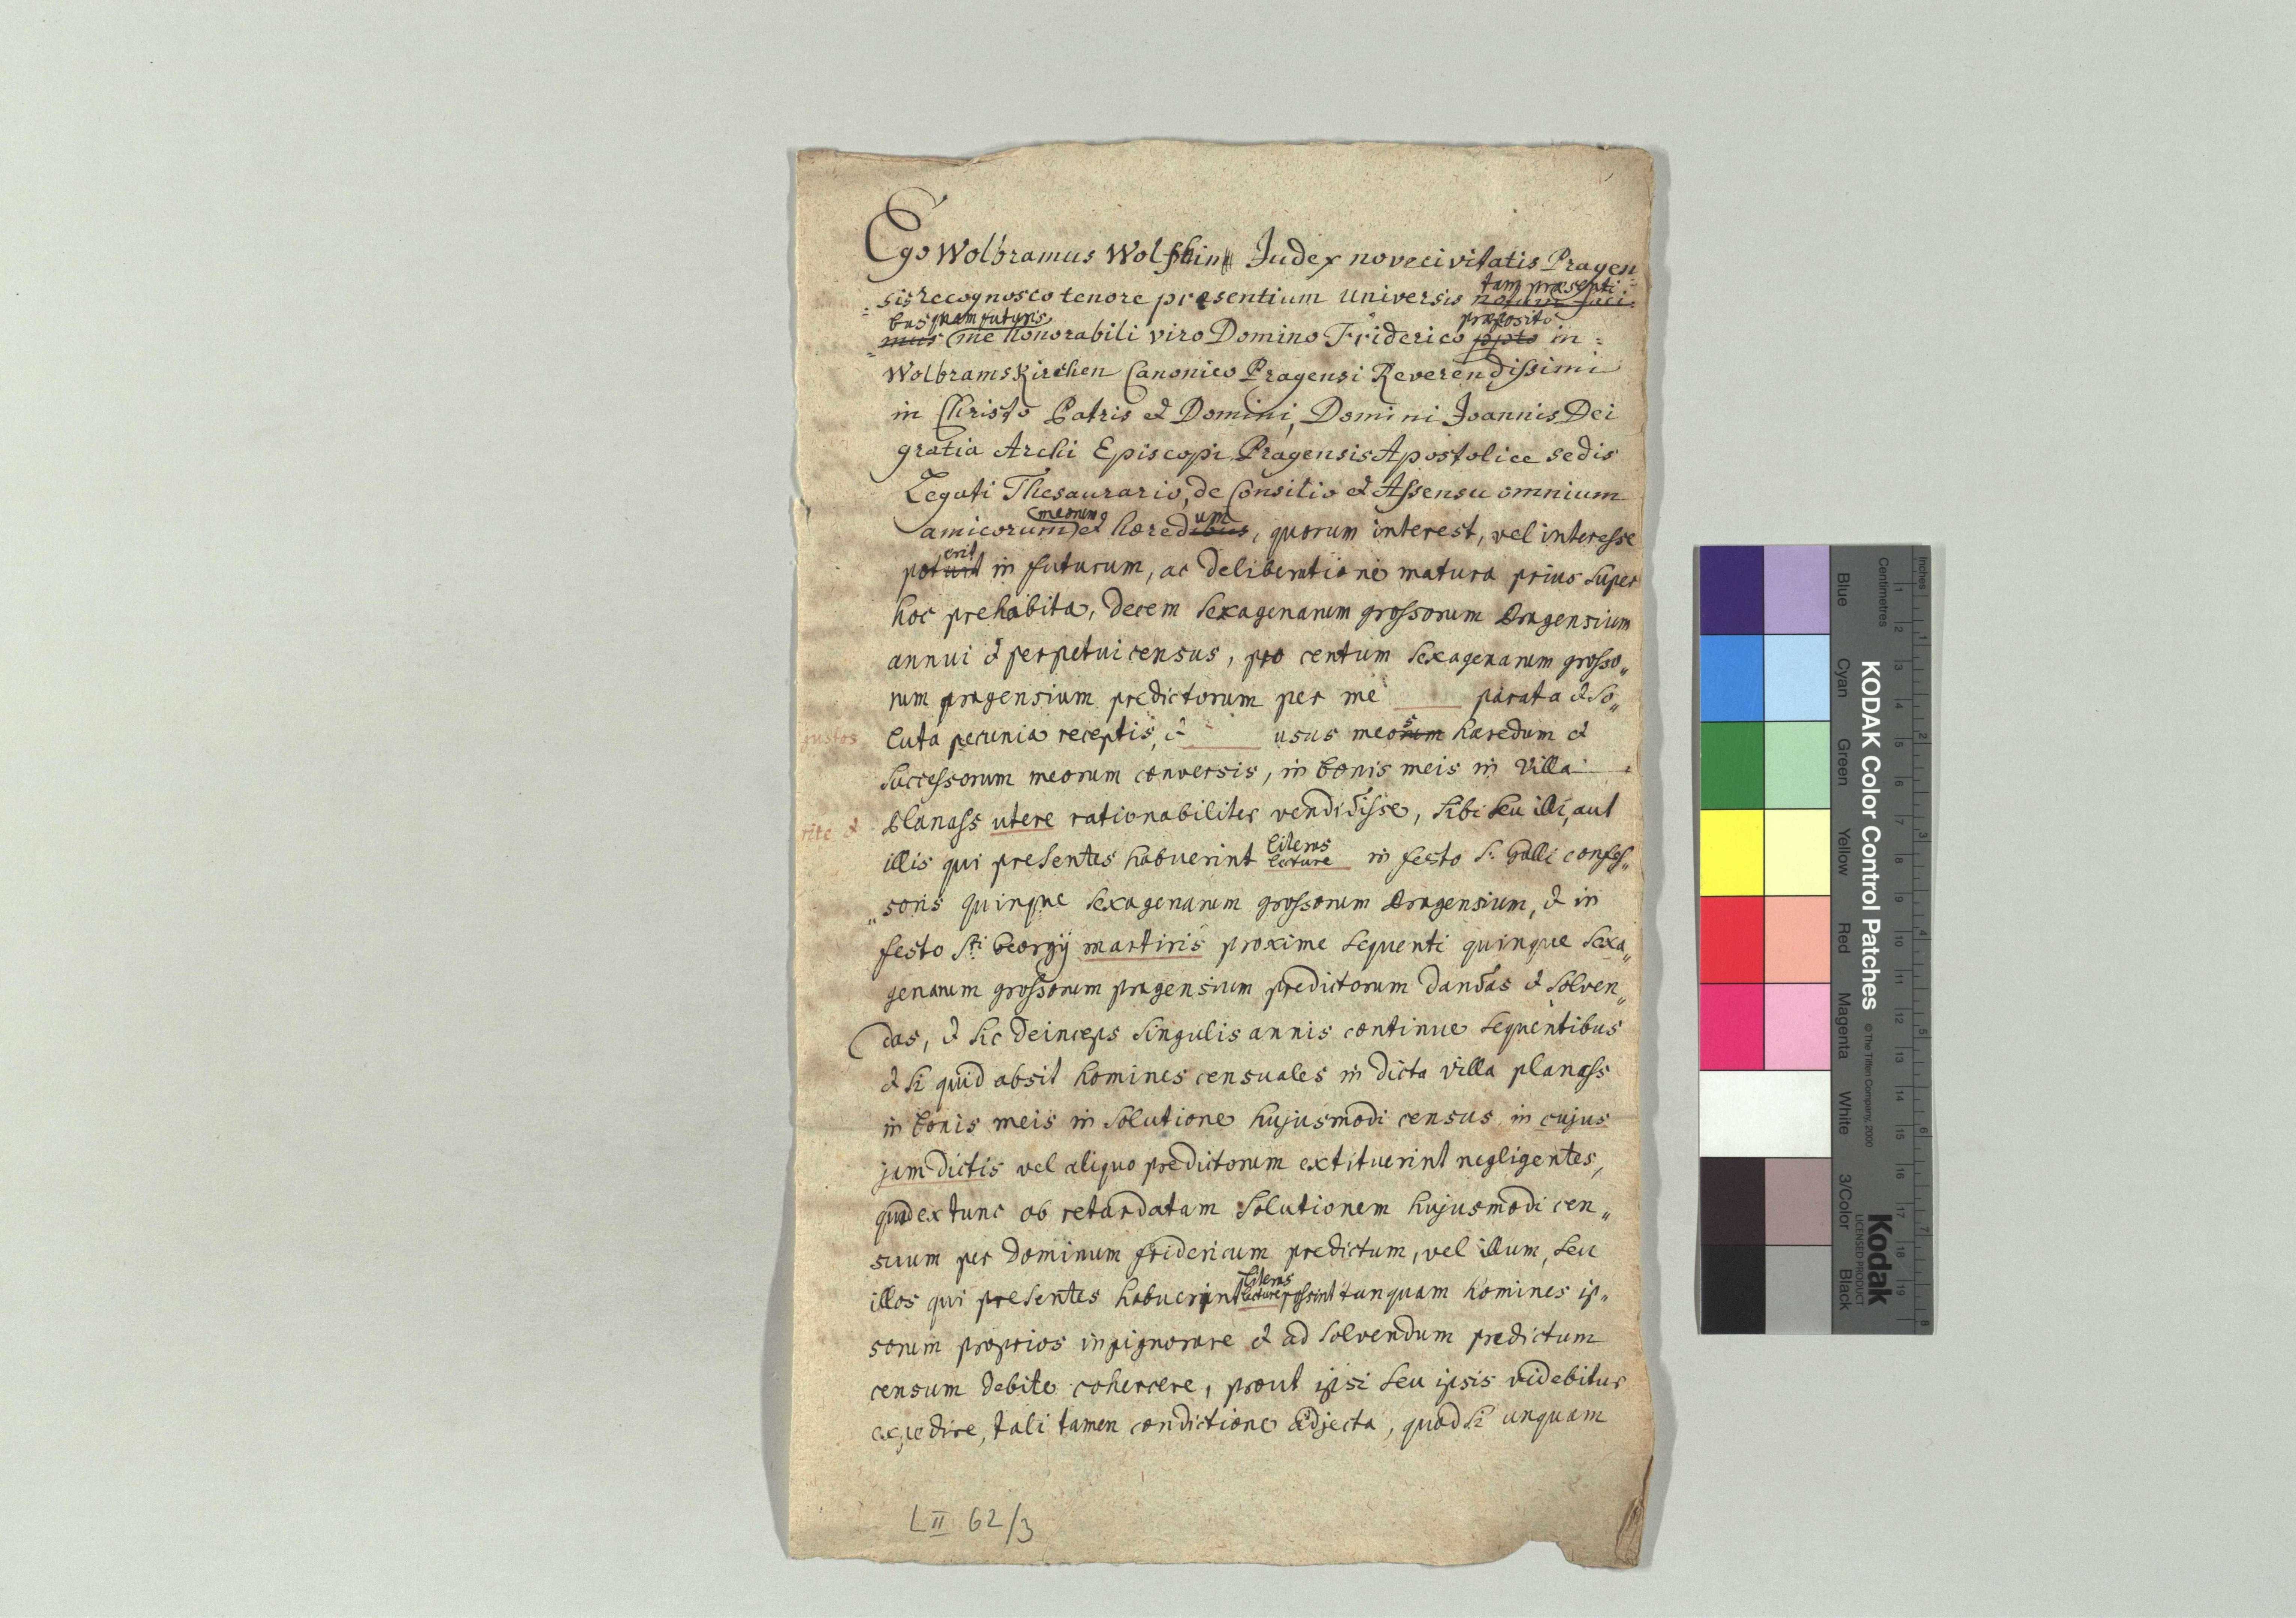 Ego Wolbramus Wolflin Judex nove civitatis Pragen
sis recognosco tenore presentium Universis notum faci
tam præsenti
bus quam futuris
mus me honorabili viro Domino Friderico ppto in
præposito
Wolbramskirchen Canonico Pragensi Reverendissimi
in Christo Patris et Domini, Domini Joannis Dei
gratia Archi Episcopi Pragensis Apostolice sedis
Legati Thesaurario, de Consilio et Assensu omnium
meorum
um
amicorum et hæredibus, quorum interest, vel interesse
erit
poturit in futurum, ac deliberatione matura prius super
hoc prehabita, decem sexagenarum grossorum Pragensium
annui et perpetui census, pro centum sexagenarum grosso„
rum pragensium predictorum per me parata et so„
gustos
luta pecunia receptis, et usus meorum hæredum et
s
successorum meorum conversis, in bonis meis in Villa
rite et
planass utere rationabiliter vendidisse, sibi seu illi, aut
literas
illis qui presentes habuerint lecture in festo S. Galli confes„
„soris quinque sexagenarum grossorum Pragensium, et in
festo Sti Georgÿ martiris proxime sequenti quinque sexa„
genarum grossorum pragensium predictorum dandas et solven„
das, et sic deinceps singulis annis continue sequentibus
et si quid absit homines censuales in dicta villa planass
in bonis meis in solutione hujusmodi census in cujus
jam dictis vel aliquo predictorum extituerint negligentes,
quod ex tunc ob retardatam solutionem hujusmodi cen„
suum per Dominum fridericum predictum, vel illum, seu
literas
illos qui presentes habuerint lecture possint tanquam homines ip„
sorum proprios inpignorare et ad solvendum predictum
censum debite cohercere, prout ipsi seu ipsis videbitur
expedire, tali tamen condictione adjecta, quod si unquam
L II 62/3
KODAK Color Control Patches
© The Tiffen Company, 2000
Kodak
LICENSED PRODUCT
Blue
Cyan
Green
Yellow
Red
Magenta
White
3/Color
Black
Centimetres
Inches
1 2 3 4 5 6 7 8 9 10 11 12 13 14 15 16 17 18 19
1 2 3 4 5 6 7 8